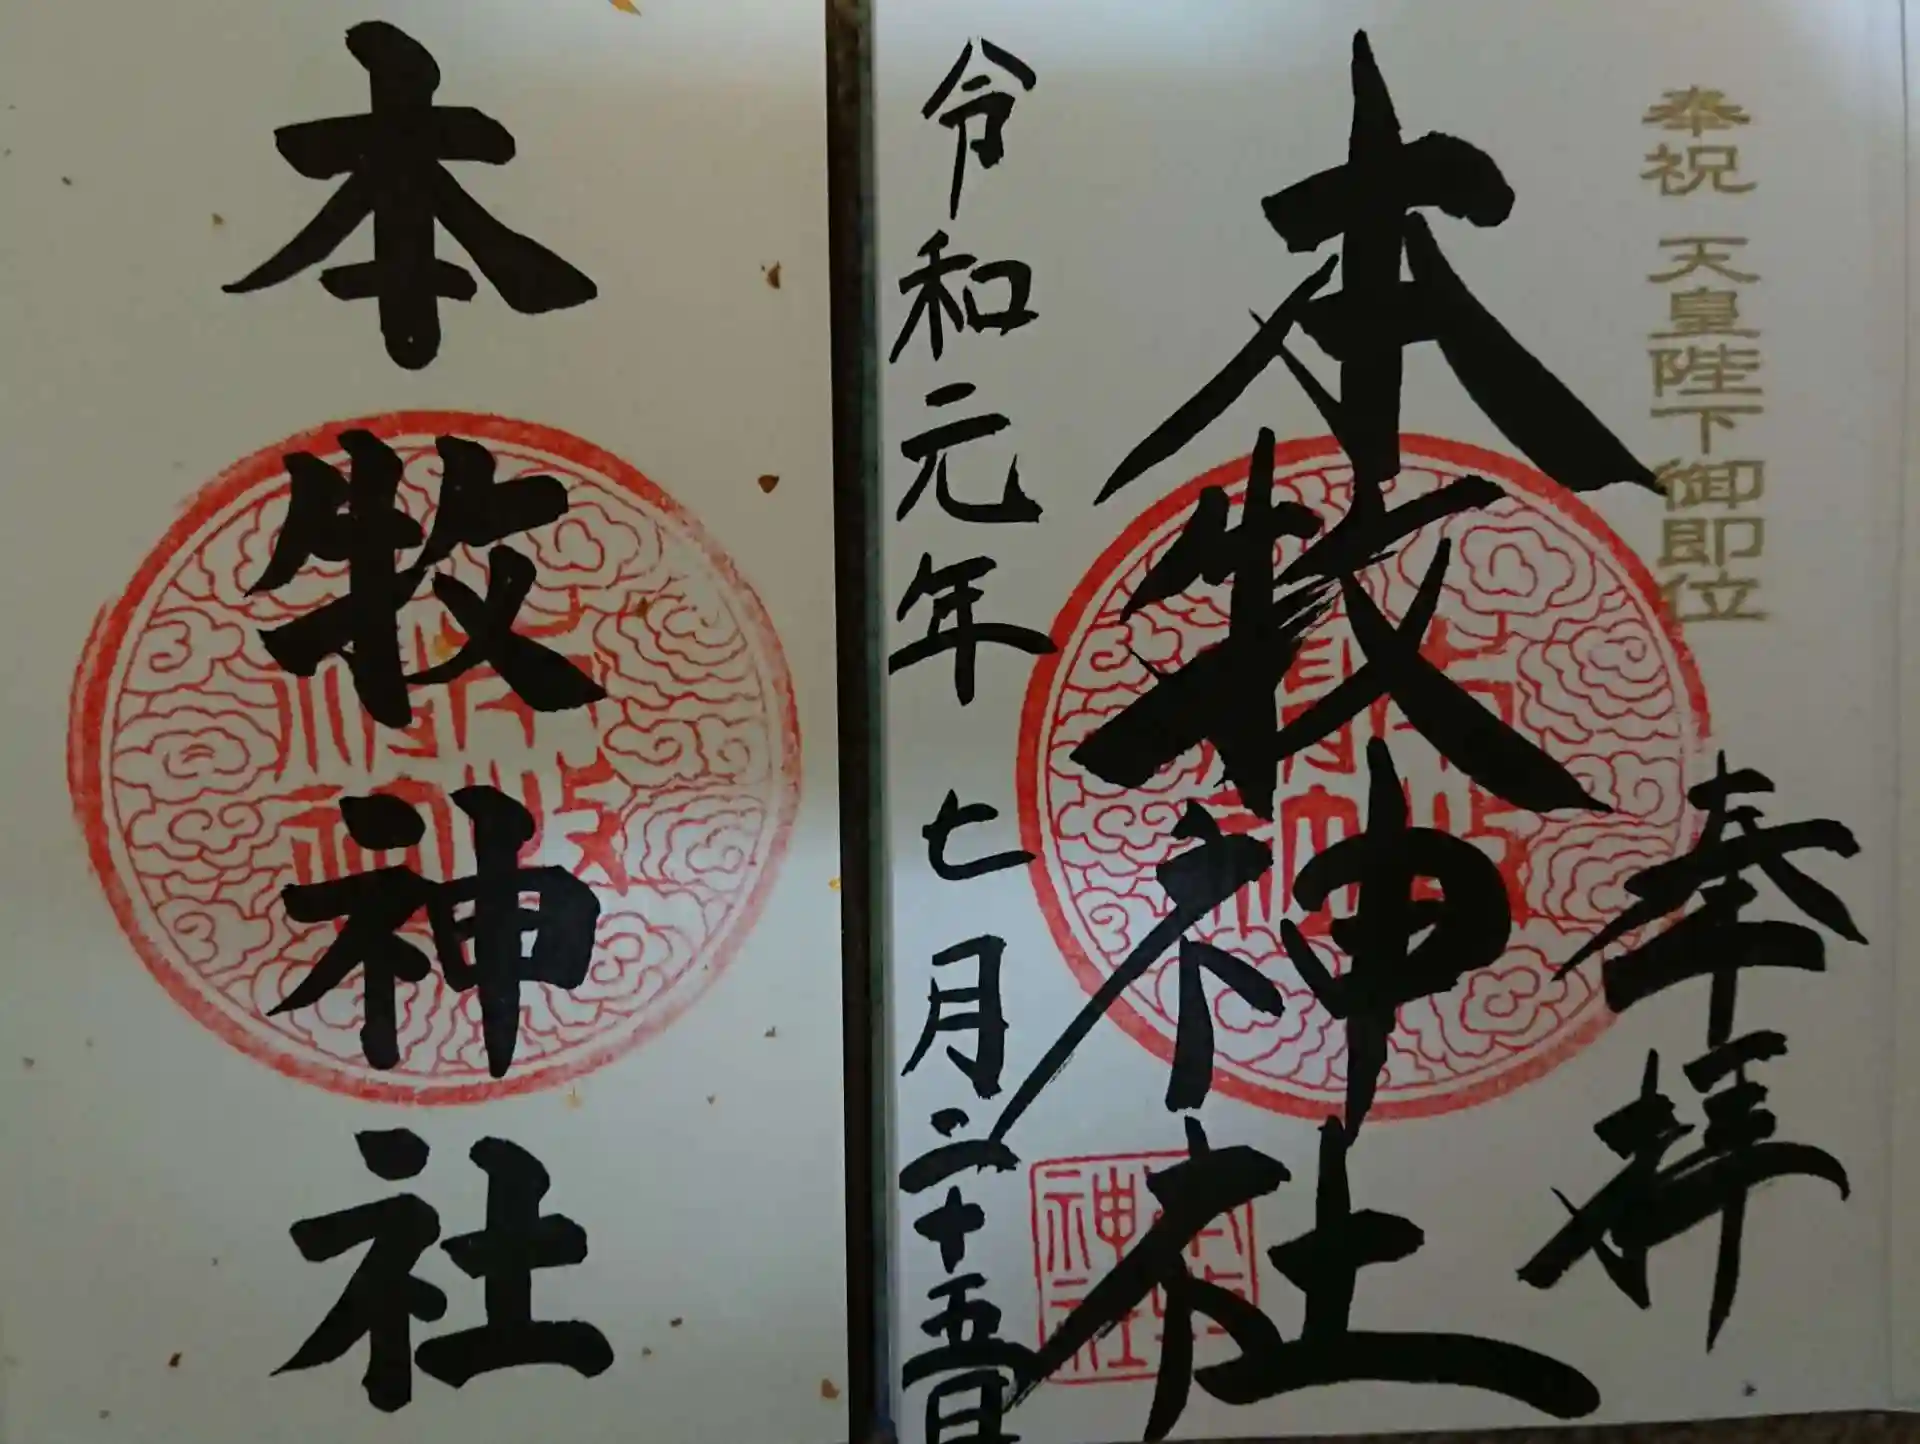 奉祝 天皇陛下御即位
奉拝
本牧神社
令和元年 七月二十五日
神社
本牧神社